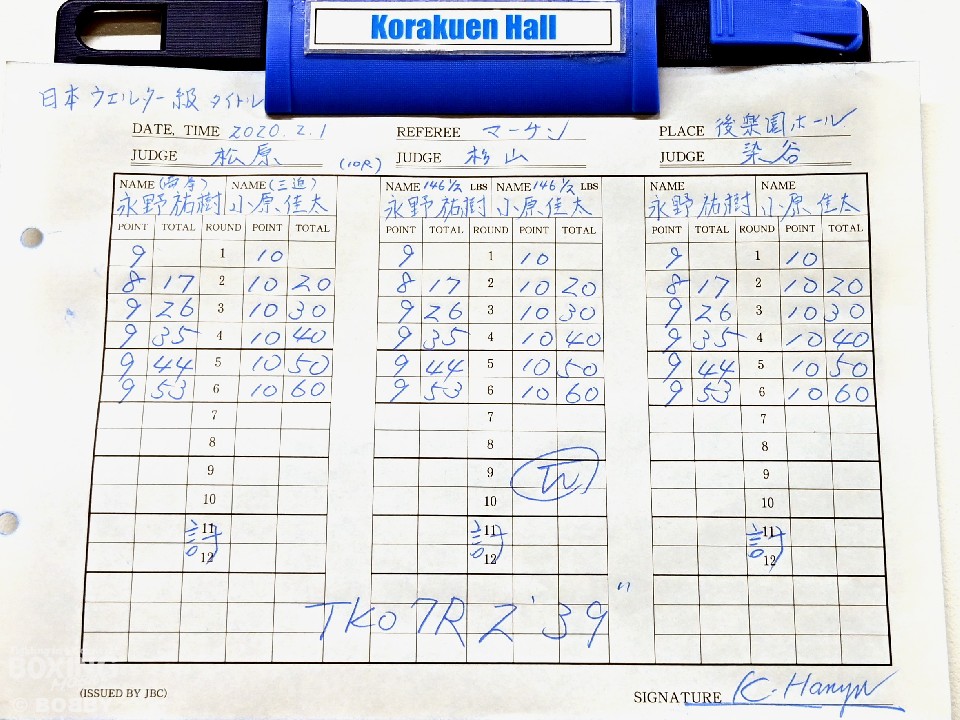 Korakuen Hall
日本ウェルター級 タイトル
DATE, TIME 2020.2.1 REFEREE マーチン PLACE 後楽園ホール
JUDGE 松原 (10R) JUDGE 杉山 JUDGE 染谷
NAME NAME (三迫) NAME 146 1/2 LBS NAME 146 1/2 LBS NAME NAME
永野祐樹 小原佳太 永野祐樹 小原佳太 永野祐樹 小原佳太
POINT TOTAL ROUND POINT TOTAL POINT TOTAL ROUND POINT TOTAL POINT TOTAL ROUND POINT TOTAL
9 1 10 9 1 10 9 1 10
8 17 2 10 20 8 17 2 10 20 8 17 2 10 20
9 26 3 10 30 9 26 3 10 30 9 26 3 10 30
9 35 4 10 40 9 35 4 10 40 9 35 4 10 40
9 44 5 10 50 9 44 5 10 50 9 44 5 10 50
9 53 6 10 60 9 53 6 10 60 9 53 6 10 60
7 7 7
8 8 8
9 9 W 9
10 10 10
11 11 11
計 計 計
12 12 12
TKO 7R 2'39"
BOXING
© BOBBY
(ISSUED BY JBC) SIGNATURE K. Hanyu